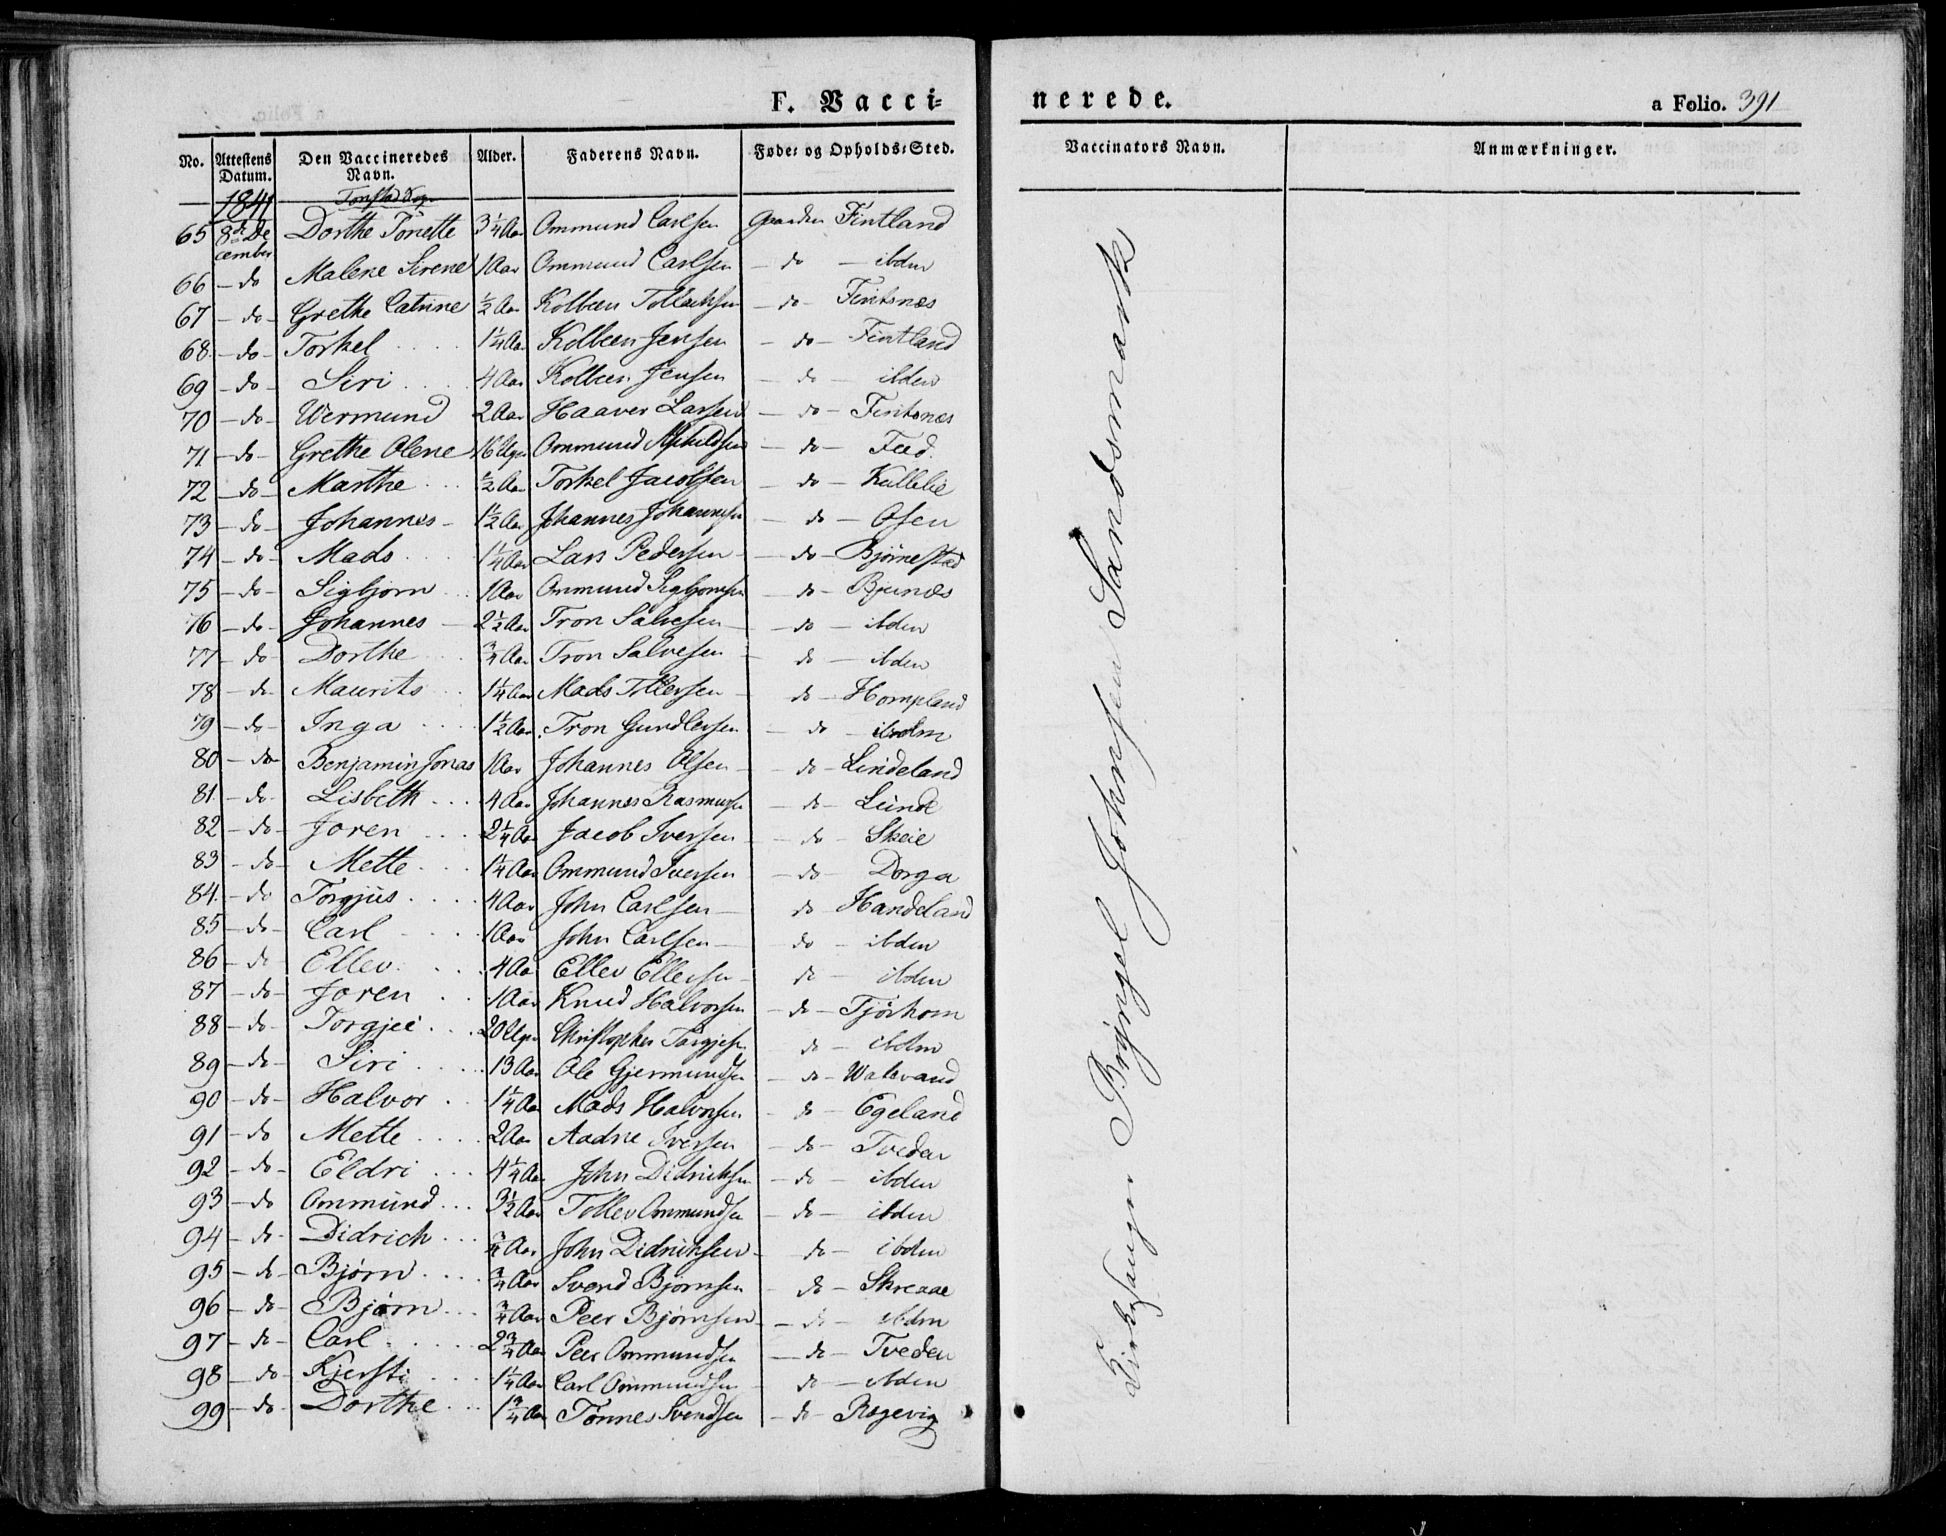 F. Vacci= nerede. a Folio. 391
No. Attestens Datum. Den Vaccineredes Navn. Alder. Faderens Navn. Føde= og Opholds=Sted. Vaccinators Navn. Anmærkninger.
1841 Tonstad Sogn
65 8de December Dorthe Tønette 3 1/4 Aar Ommund Carlsen Gaarden Fintland
66 – do Malene Sirene 1 Aar Ommund Carlsen – do – ibden
67 – do – Grethe Catrine 1/2 Aar Kolbeen Tollachsen – do – Fintsnæs
68 – do – Torkel 1 1/4 Aar Kolbeen Jensen – do – Fintland
69 – do – Siri 4 Aar Kolbeen Jensen – do – ibden
70 – do – Wermund 2 Aar Haaver Larsen – do – Fintsnæs
71 – do – Grethe Olene 16 Uger Ommund Aschildsen – do – Feed.
72 – do – Marthe 1/2 Aar Torkel Jacobsen – do – Kulleliе
73 – do – Johannes – 1 1/2 Aar Johannes Johannesen – do – Osen
74 – do – Mads 1 1/4 Aar Lars Pedersen – do – Bjørnestad
75 – do – Sigbjørn 1 Aar Ommund Sigbjørnsen – do – Bjunæs
76 – do – Johannes 2 1/2 Aar Tron Salvesen – do – ibden
77 – do – Dorthe 3/4 Aar Tron Salvesen – do – ibden
78 – do – Maurits 1 1/4 Aar Mads Tollevsen – do – Hompland
79 – do – Inga 1 1/2 Aar Tron Gundlevsen – do – ibden
80 – do – Benjamin Jonas 1 Aar Johannes Olsen – do – Lindeland
81 – do – Lisbeth 4 Aar Johannes Rasmusen – do – Lunde
82 – do – Joren 2 1/4 Aar Jacob Iversen – do – Skeie
83 – do – Mette 1 1/4 Aar Ommund Iversen – do – Dorga
84. – do Torgjus 4 Aar John Carlsen – do – Handeland
85 – do – Carl 1 Aar John Carlsen – do – ibden
86 – do Ellev 4 Aar Ellev Ellevsen – do ibden
87 – do – Joren 1 Aar Knud Halvorsen – do – Tjørhom
88 – do – Torgjei 20 Uger Christopher Torgjesen – do – ibden
89 – do – Siri 13 Aar Ole Gjermundsen – do – Watsvand
90 – do – Halvor 1 1/4 Aar Mads Halvorsen – do – Egeland
91 – do Mette 2 Aar Aadne Iversen – do – Tveden
92 – do – Eldri 4 1/4 Aar John Didriksen – do – ibden
93 – do Ommund 3 1/2 Aar Tollev Ommundsen – do – ibden
94 – do – Didrich 3/4 Aar John Didriksen – do – ibden
95 – do – Bjørn 3/4 Aar Svend Bjørnsen – do – Skreaae
96 – do – Bjørn 3/4 Aar Peer Bjørnsen – do – ibden
97 – do – Carl 2 3/4 Aar Peer Ommundsen – do – Tveden
98 – do – Kjersti 1 1/4 Aar Carl Ommundsen – do – ibden
99 – do – Dorthe 1 3/4 Aar Tønnes Svendsen – do – Røgevig
Kirkesanger Bryngel Johnsen Sandsmark